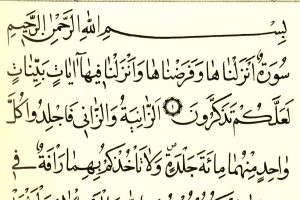 بِسْمِ اللهِ الرَّحْمٰنِ الرَّحِيمِ
سُورَةٌ أَنْزَلْنَاهَا وَفَرَضْنَاهَا وَأَنْزَلْنَا فِيهَا آيَاتٍ بَيِّنَاتٍ
لَعَلَّكُمْ تَذَكَّرُونَ ١ اَلزَّانِيَةُ وَالزَّانِي فَاجْلِدُوا كُلَّ
وَاحِدٍ مِنْهُمَا مِائَةَ جَلْدَةٍ وَلَا تَأْخُذْكُمْ بِهِمَا رَأْفَةٌ فِي